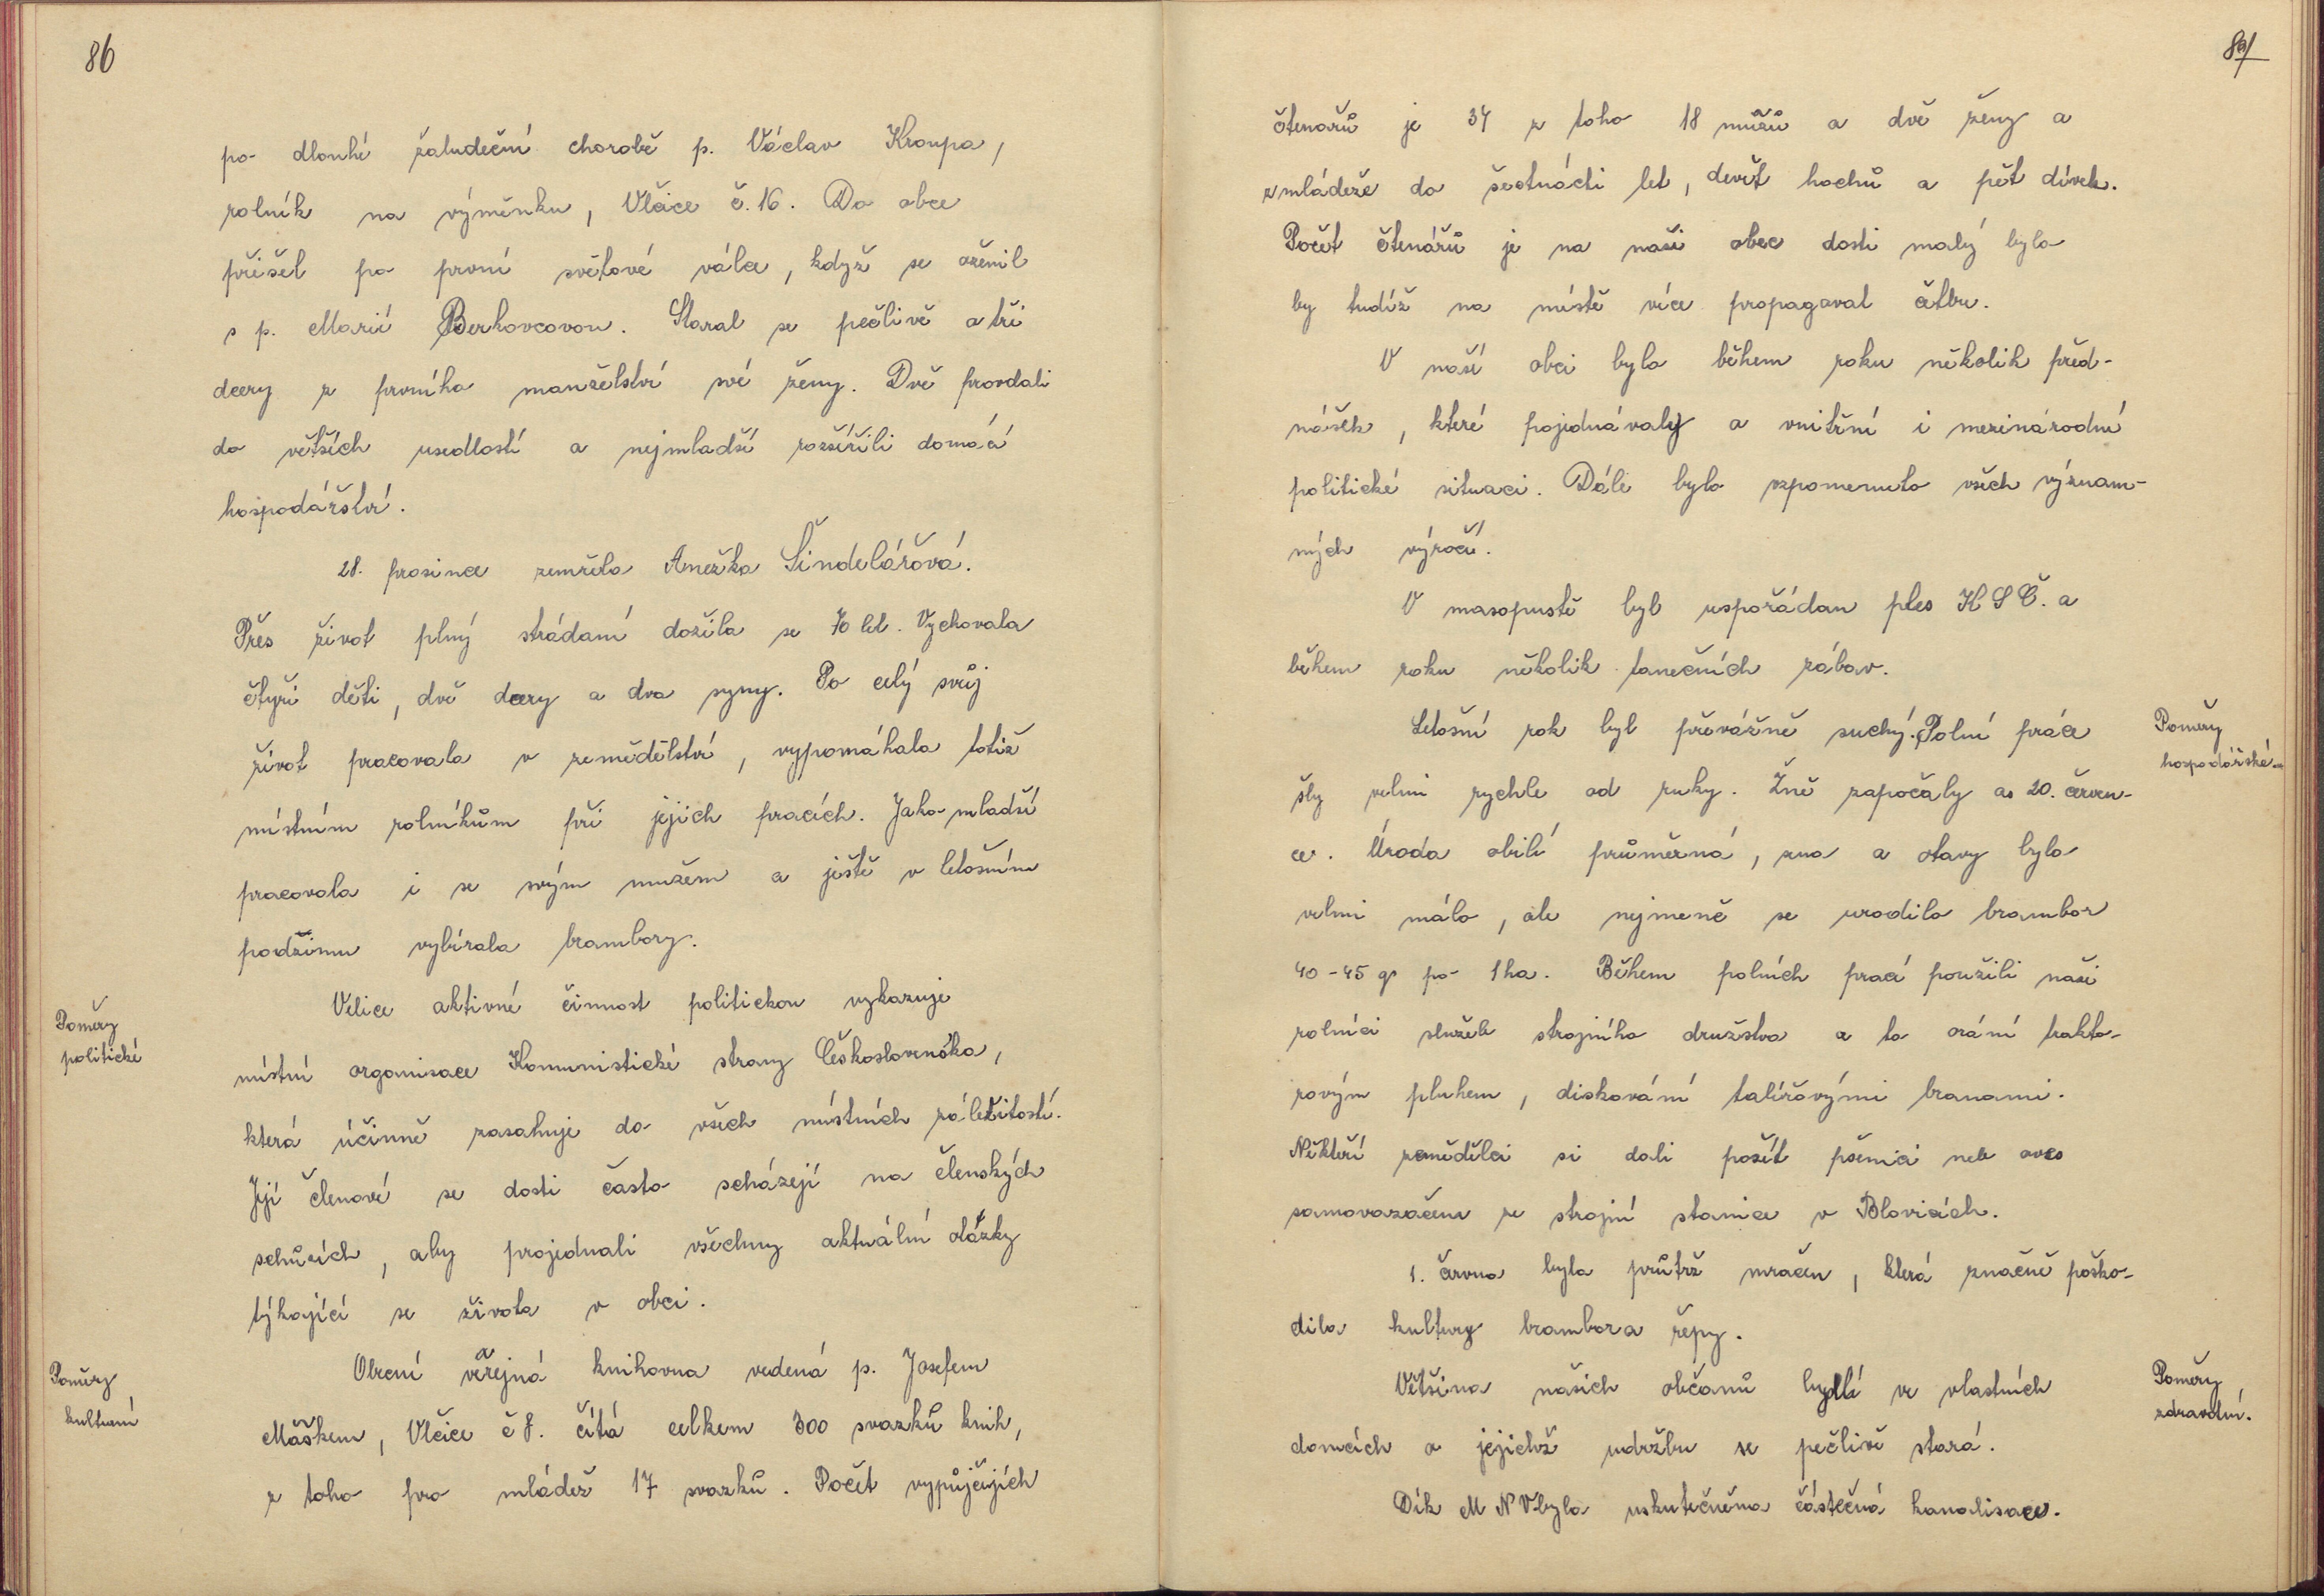 86
po dlouhé žaludeční chorobě p. Václav Kroupa,
rolník na výměnku, Vlčice č. 16. Do obce
přišel po první světové válce, když se oženil
s p. Marií Berkovcovou. Staral se pečlivě o tři
dcery z prvního manželství své ženy. Dvě provdali
do větších usedlostí a nejmladší rozšířili domácí
hospodářství.
28. prosince zemřela Anežka Šindelářová.
Přes život plný strádaní dožila se 70 let. Vychovala
čtyři děti, dvě dcery a dva syny. Po celý svůj
život pracovala v zemědělství, vypomáhala totiž
místním rolníkům při jejich pracích. Jako mladší
pracovala i se svým mužem a ještě v letošním
podzimu vybírala brambory.
Poměry
politické
Velice aktivné činnost politickou vykazuje
místní organisace Komunistické strany Československa,
která účinně zasahuje do všech místních záležitostí.
Její členové se dosti často scházejí na členských
schůzích, aby projednali všechny aktuální otázky
týkající se života v obci.
Poměry
kulturní
Obecní veřejná knihovna vedená p. Josefem
Máškem, Vlčice č 8. čítá celkem 300 svazků knih,
z toho pro mládež 17 svazků. Počet vypůjčujích
87
čtenářů je 34 z toho 18 mužů a dvě ženy a
z mládeže do šestnácti let, devět hochů a pět dívek.
Počet čtenářů je na naši obec dosti malý bylo
by tudíž na místě více propagovat četbu.
V naší obci bylo během roku několik před-
nášek, které pojednávaly o vnitřní i mezinárodní
politické situaci. Dále bylo vzpomenuto všech význam-
ných výročí.
V masopustě byl uspořádan ples KSČ. a
během roku několik tanečních zábav.
Poměry
hospodářské.
Letošní rok byl převážně suchý. Polní práce
šly velmi rychle od ruky. Žně započaly as 20. červen-
ce. Úroda obilí průměrná, sena a otavy bylo
velmi málo, ale nejmeně se urodilo brambor
40-45 q po 1 ha. Během polních prací použili naši
rolníci služeb strojního družstva a to orání trakto-
rovým pluhem, diskování talířovými branami.
Někteří zemědělci si dali posít pšenici neb oves
samovazačem ze strojní stanice v Blovicích.
1. června byla průtrž mračen, která značně poško-
dila kultury brambor a řepy.
Poměry
zdravotní.
Většina našich občanů bydlí ve vlastních
domcích o jejichž udržbu se pečlivě stará.
Dík MNV byla uskutečněna částečná kanalisace.